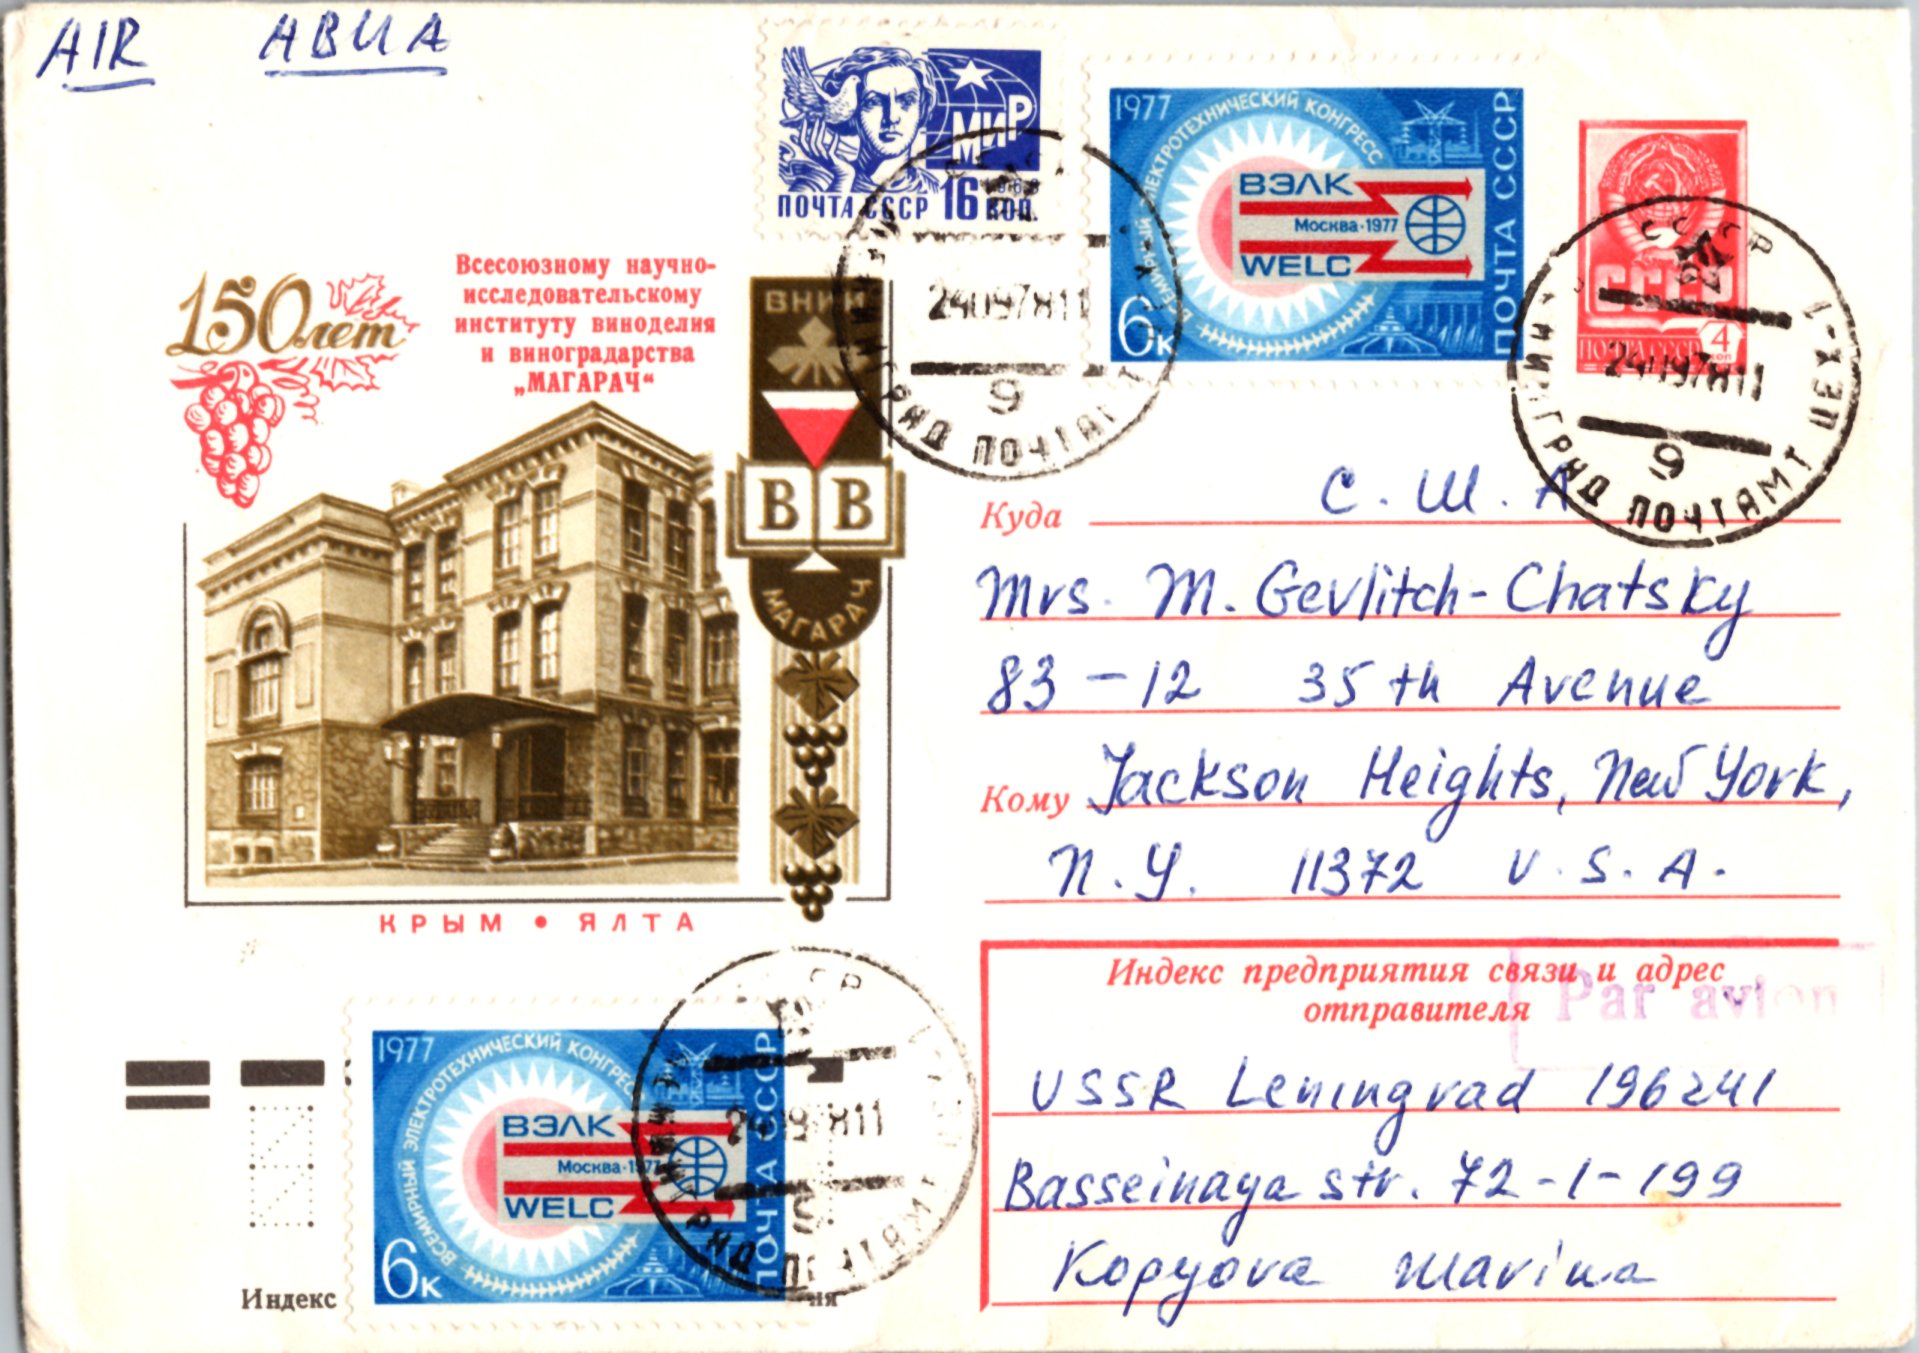 AIR АВИА
МИР
1968
ПОЧТА СССР 16 КОП.
1977
ВСЕМИРНЫЙ ЭЛЕКТРОТЕХНИЧЕСКИЙ КОНГРЕСС
ВЭЛК
Москва·1977
WELC
6к
ПОЧТА СССР
СССР
ПОЧТА СССР 4 коп
СССР
24097811
9
ЛЕНИНГРАД ПОЧТАМТ ЦЕХ-1
СССР
24097811
9
ЛЕНИНГРАД ПОЧТАМТ ЦЕХ-1
150 лет
Всесоюзному научно-
исследовательскому
институту виноделия
и виноградарства
„МАГАРАЧ“
ВНИИ
В В
МАГАРАЧ
КРЫМ • ЯЛТА
Куда С. Ш. А
Mrs. M. Gevlitch-Chatsky
83-12 35th Avenue
Кому Jackson Heights, New York,
N.Y. 11372 U.S.A.
Индекс предприятия связи и адрес
отправителя
Par avion
USSR Leningrad 196241
Basseinaya str. 72-1-199
Kopyova Marina
1977
ВСЕМИРНЫЙ ЭЛЕКТРОТЕХНИЧЕСКИЙ КОНГРЕСС
ВЭЛК
Москва·1977
WELC
6к
ПОЧТА СССР
24097811
Индекс